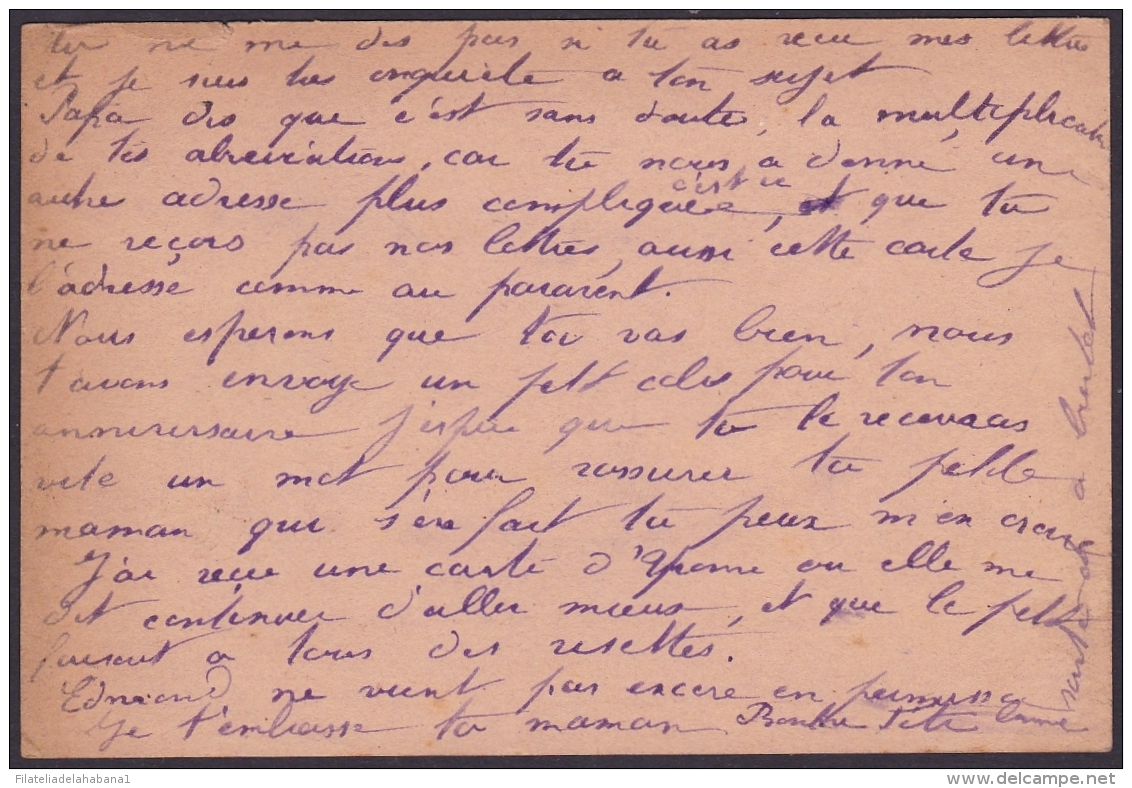 tu ne me dis pas si tu as recu mes lettres
et je suis tres inquiete a ton sujet
Papa dis que c'est sans doute, la multiplication
de tes abreviations, car tu nous a donné un
autre adresse plus compliquée, c'est ce que tu
ne reçois pas nos lettres, aussi cette carte je
l'adresse comme au paravent.
Nous esperons que tu vas bien, nous
t'avons envoye un petit colis pour ton
anniversaire j'espere que tu le recevras
vite un mot pour rassurer ta petite
maman qui s'en fait tu peux m'en croire
J'ai recue une carte d'Yvonne ou elle me
dit continuer d'aller mieux, et que le petit
faisait a tous des risettes.
Edmond ne vient pas encore en permission
Je t'embrasse ta maman
Filateliadelahabana1
www.delcampe.net